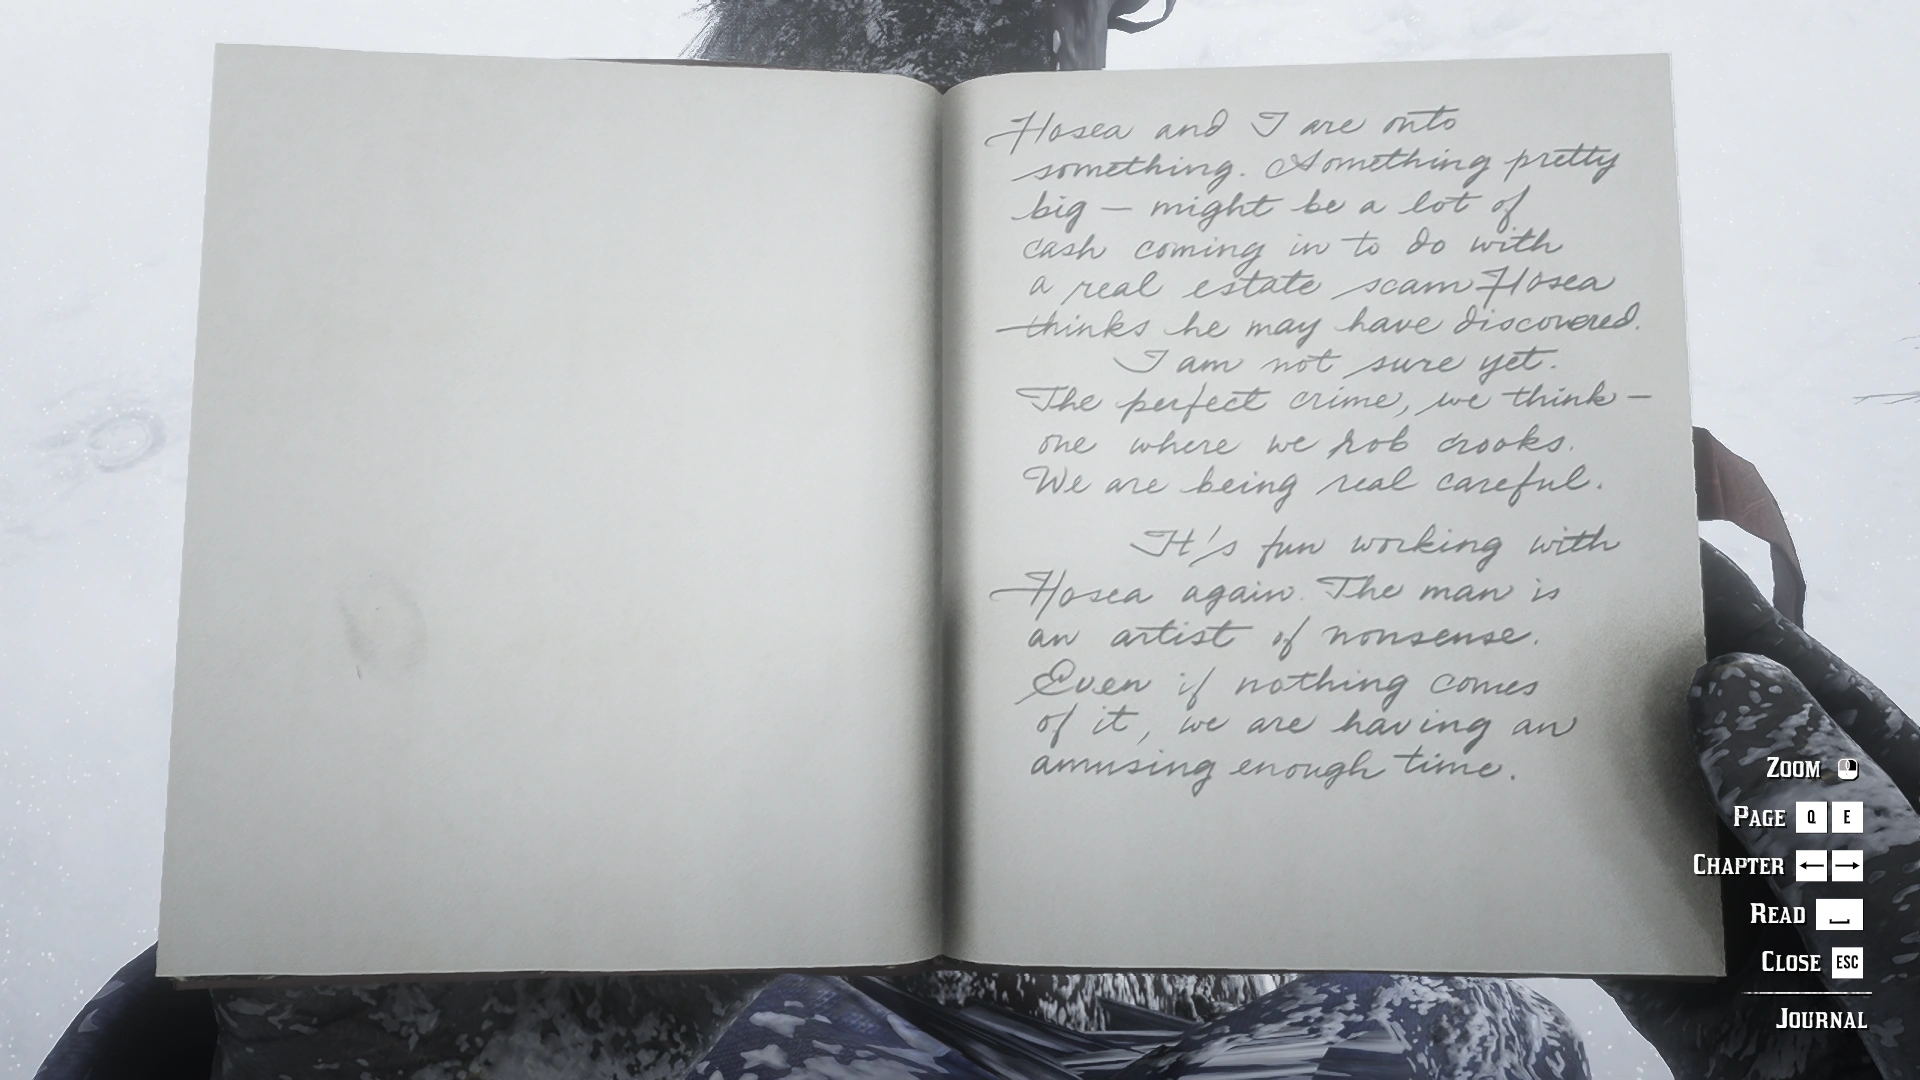 Hosea and I are onto
something. Something pretty
big — might be a lot of
cash coming in to do with
a real estate scam Hosea
thinks he may have discovered.
I am not sure yet.
The perfect crime, we think —
one where we rob crooks.
We are being real careful.
It's fun working with
Hosea again. The man is
an artist of nonsense.
Even if nothing comes
of it, we are having an
amusing enough time.
ZOOM
PAGE Q E
CHAPTER ← →
READ
CLOSE ESC
JOURNAL